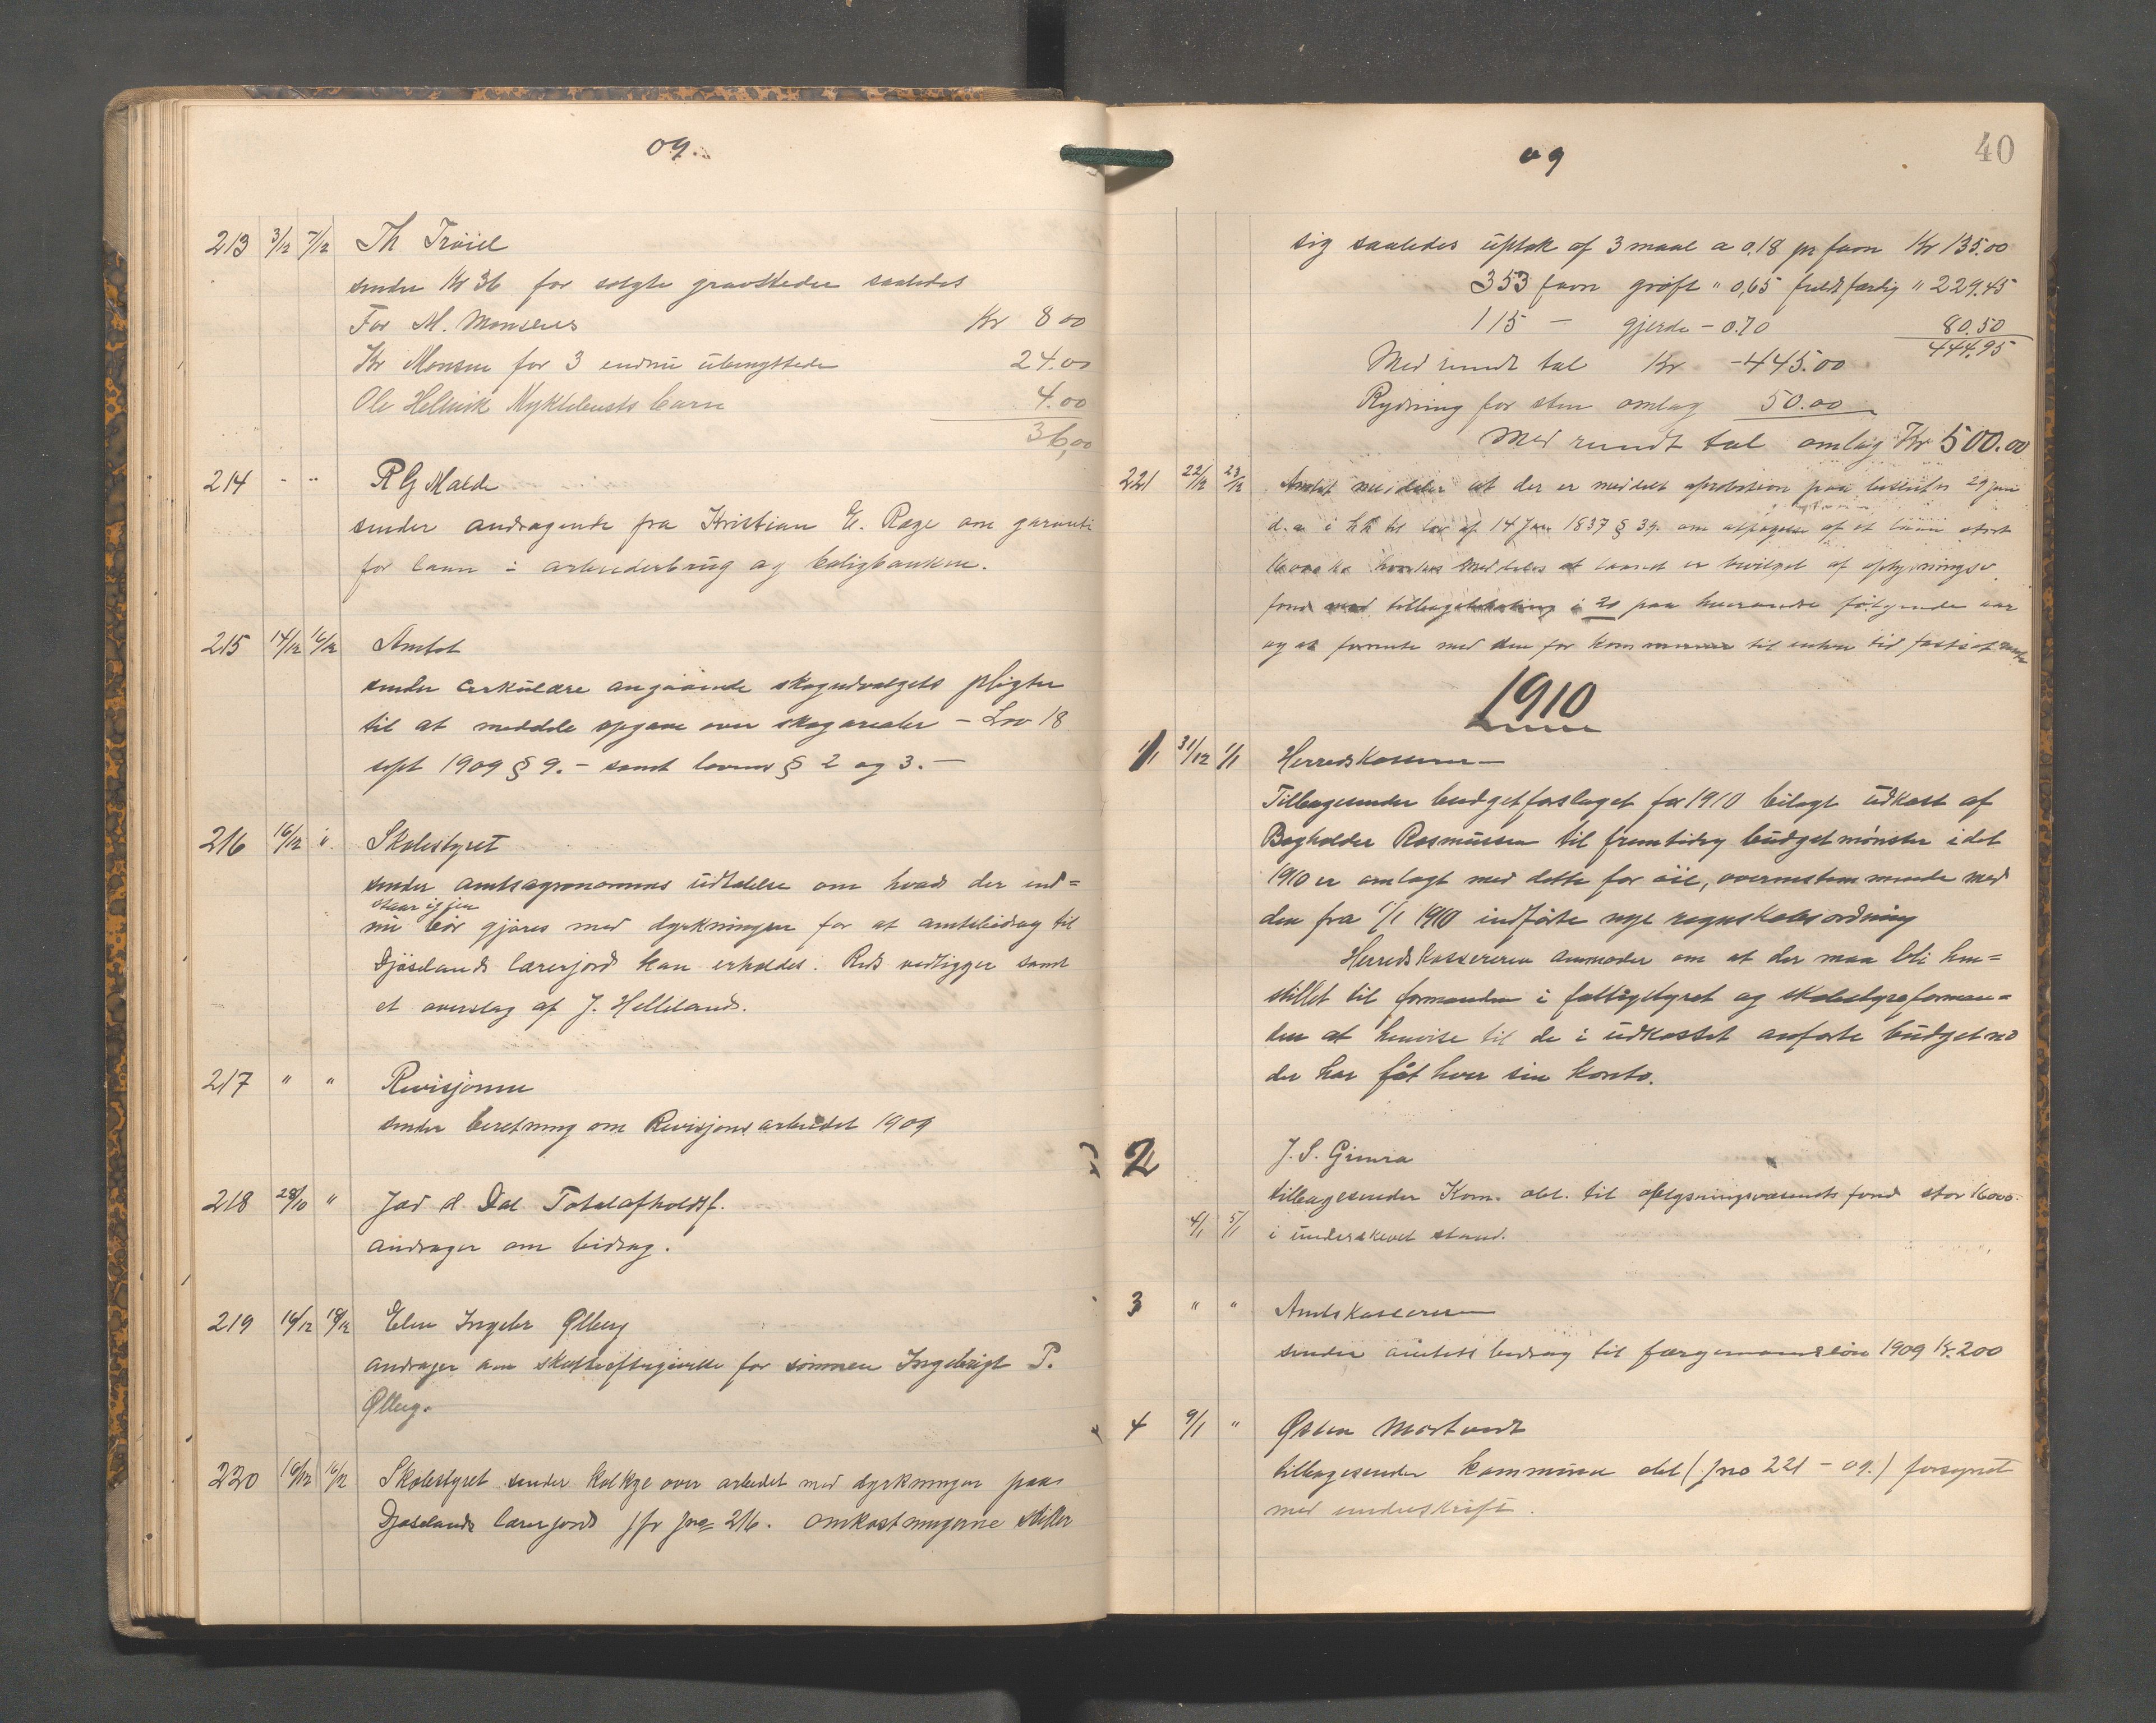 09.
213 3/12 7/12 Th Trøiel
sender Kr 36 for solgte gravsteder saaledes
For M. Monsens Kr 8 00
Kr Monsen for 3 endnu ubenyttede 24.00
Ole Hellvik Myklebusts barn 4.00
36,00
214 - -- R G Malde
sender andragende fra Kristian E. Rage om garanti
for laan i arbeiderbrug og boligbanken.
215 14/12 16/12 Amtet
sender cirkulære angaaende skogudvalgets pligter
til at meddele opgave over skogarealer - Lov 18
sept 1909 § 9. - samt lovens § 2 og 3. -
216 16/12 " Skolestyret
sender amtsagronomens udtalelse om hvad der end=
staar igjen
nu bør gjøres med dyrkningen for at amtsbidrag til
Djøselands lærerjord kan erholdes. Rids vedligger samt
et overslag af J. Hellelands.
217 " " Revisjonen
sender beretning om Revisjonsarbeidet 1909
218 28/10 " Jad d. Dal Totalafholdsf.
andrager om bidrag.
219 16/12 18/12 Elen Ingebr Ølberg
andrager om skatteeftergivelse for sønnen Ingebrigt P.
Ølberg.
220 16/12 16/12 Skolestyret sender over arbeidet med dyrkningen paa
Djøselands lærerjord jfr jno 216. Omkostningerne stiller
09
40
sig saaledes uptak af 3 maal a 0,18 pr favn Kr 135.00
353 favn grøft " 0,65 fuldt færdig " 229.45
115 - gjerde - 0.70 80.50
444.95
Med rundt tal Kr - 445.00
Rydning for sten omlag 50.00
Med rundt tal omlag Kr 500.00
221 22/12 23/12 Amtet meddeler at der er meddelt aprobation paa beslutn 29 juni
d.a. i h.h. til lov af 14 Jan 1837 § 39. om optagelse af et laan stort
16000 kr hvorhos meddeles at laanet er bevilget af oplysningsv.
fond med tilbagebetaling i 20 paa hverandre følgende aar
og at forrente med den for kommuner til enhver tid fastsat rente
1910
1/1 31/12 1/1 Herredskasseren
Tilbagesender budgetforslaget for 1910 bilagt udkast af
Bogholder Rasmussen til fremtidig budgetmønster idet
1910 er omlagt med dette for øie, overensstemmende med
den fra 1/1 1910 indførte nye regnskabsordning
Herredskassereren anmoder om at der maa bli hen=
stillet til formanden i fattigstyret og skolestyreforman=
den at henvise til de i udkastet anførte budget no
der har fåt hver sin konto.
2 J. S. Grimra
tilbagesender Kom. obl. til oplysningsvæsenets fond stor 16000.
4/1 5/1 i underskrevet stand.
3 " " Amtskassereren
sender amtets bidrag til færgemandsløn 1909 Kr. 200
4 9/1 " Østen Mortveit
tilbagesender kommunen obl (jno 221 - 09.) forsynet
med underskrift.